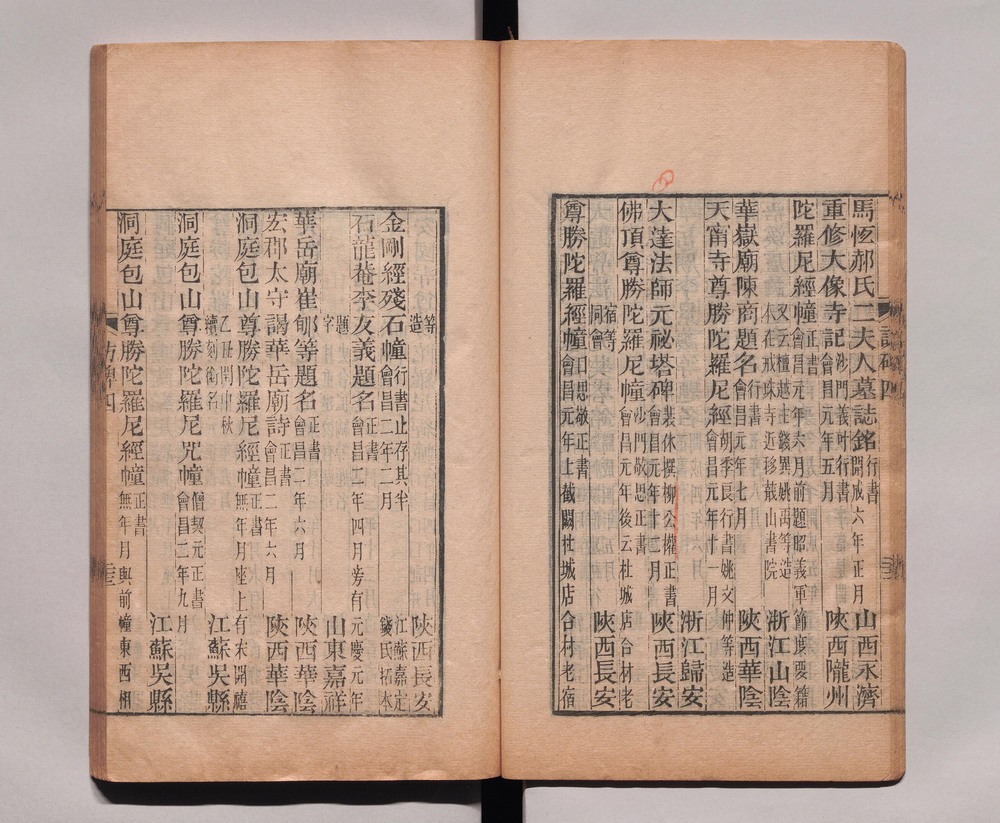 馬恆郝氏二夫人墓誌銘 行書 開成六年正月 山西永濟
重修大像寺記 沙門義叶行書 會昌元年五月 陝西隴州
陀羅尼經幢 正書 會昌元年六月前題昭義軍節度要籍
又云檀越主錢異姚禹等造 本在戒珠寺近移蕺山書院 浙江山陰
華嶽廟陳商題名 行書 會昌元年七月 陝西華陰
天甯寺尊勝陀羅尼經 胡季良行書姚文仲等造 會昌元年十一月
浙江歸安
大達法師元祕塔碑 裴休撰柳公權正書 會昌元年十二月 陝西長安
佛頂尊勝陀羅尼幢 沙門敬思正書 會昌元年後云杜城店合村老
宿等 同會 陝西長安
尊勝陀羅經幢 曰思敬正書 會昌元年上截闕杜城店合村老宿
等 造 陝西長安
金剛經殘石幢 行書止存其半 會昌二年二月 江蘇嘉定 錢氏拓本
石龍菴李友義題名 正書 會昌二年四月旁有元慶元年
題 字 山東嘉祥
華岳廟崔郇等題名 正書 會昌二年六月 陝西華陰
宏郡太守謁華岳廟詩 正書 會昌二年六月 陝西華陰
洞庭包山尊勝陀羅尼經幢 正書 無年月座上有宋開禧
乙丑閏中秋 續刻銜名 江蘇吳縣
洞庭包山尊勝陀羅尼咒幢 僧契元正書 會昌二年九月 江蘇吳縣
洞庭包山尊勝陀羅尼經幢 正書 無年月與前幢東西相
訪碑四